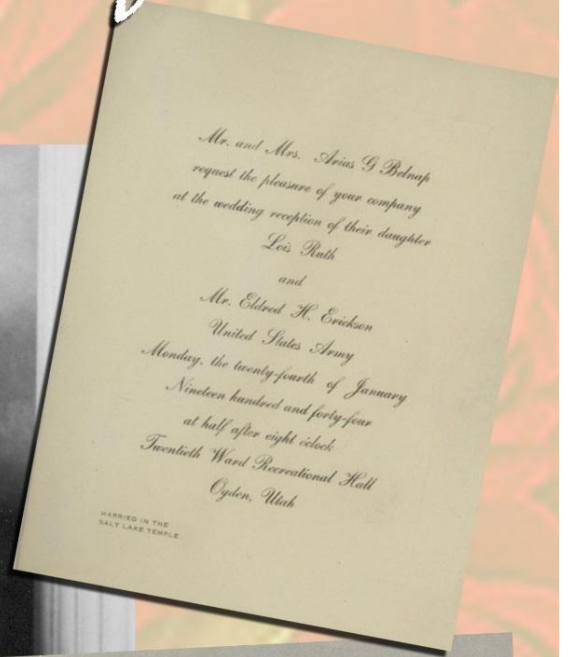 Mr. and Mrs. Arias G Belnap
request the pleasure of your company
at the wedding reception of their daughter
Lois Ruth
and
Mr. Eldred H. Erickson
United States Army
Monday, the twenty-fourth of January
Nineteen hundred and forty-four
at half after eight o'clock
Twentieth Ward Recreational Hall
Ogden, Utah
MARRIED IN THE
SALT LAKE TEMPLE